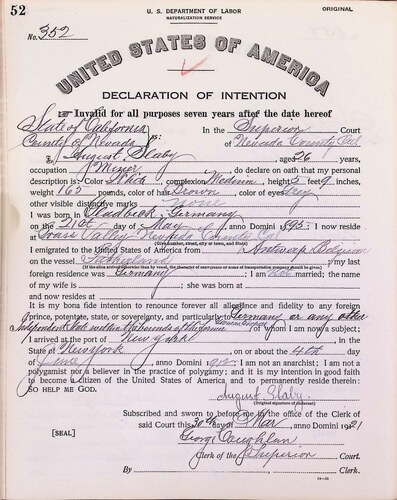 52
U. S. DEPARTMENT OF LABOR
NATURALIZATION SERVICE
ORIGINAL
No. 352
UNITED STATES OF AMERICA
DECLARATION OF INTENTION
Invalid for all purposes seven years after the date hereof
State of California
County of Nevada ss:
In the Superior Court
of Nevada County Cal
I, August Slaby, aged 26 years,
occupation Miner, do declare on oath that my personal
description is: Color White, complexion Medium, height 5 feet 9 inches,
weight 165 pounds, color of hair Brown, color of eyes Grey
other visible distinctive marks none
I was born in Gladbeck, Germany
on the 21st day of May, anno Domini 1895; I now reside
at Grass Valley Nevada County Cal.
(Give number, street, city or town, and State)
I emigrated to the United States of America from Antwerp Belgium
on the vessel; my last
(If the alien arrived otherwise than by vessel, the character of conveyance or name of transportation company should be given)
foreign residence was Germany; I am not married; the name
of my wife is; she was born at
and now resides at
It is my bona fide intention to renounce forever all allegiance and fidelity to any foreign
prince, potentate, state, or sovereignty, and particularly to Germany or any other
Independent State within the bounds of the former German Empire, of whom I am now a subject;
I arrived at the port of New York, in the
State of New York, on or about the 4th day
of June, anno Domini 1912; I am not an anarchist; I am not a
polygamist nor a believer in the practice of polygamy; and it is my intention in good faith
to become a citizen of the United States of America and to permanently reside therein:
SO HELP ME GOD.
August Slaby
(Original signature of declarant)
Subscribed and sworn to before me in the office of the Clerk of
said Court this 30th day of Mar, anno Domini 1921
[SEAL]
George Coughlan
Clerk of the Superior Court.
By, Clerk.